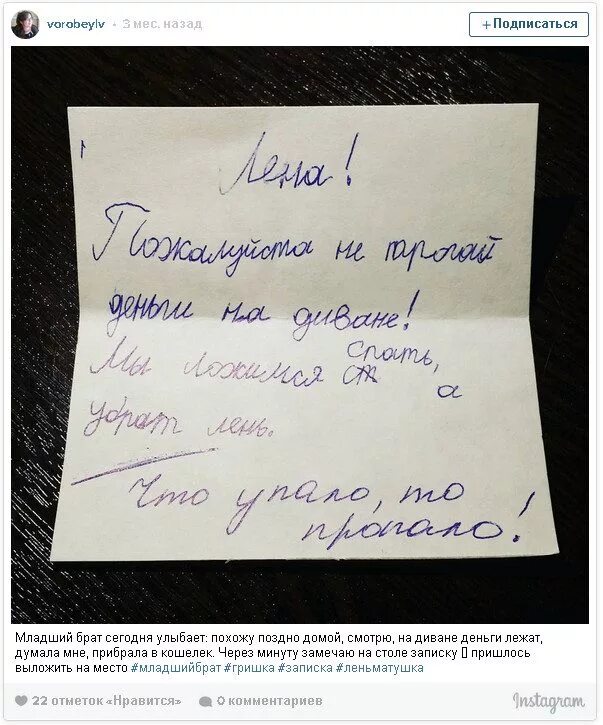 vorobeylv • 3 мес. назад
+Подписаться
Лена!
Пожалуйста не трогай
деньги на диване!
Мы ложимся спать, а
убрат лень.
Что упало, то
пропало!
Младший брат сегодня улыбает: похожу поздно домой, смотрю, на диване деньги лежат,
думала мне, прибрала в кошелек. Через минуту замечаю на столе записку ▯ пришлось
выложить на место #младшийбрат #гришка #записка #леньматушка
22 отметок «Нравится» 0 комментариев
Instagram